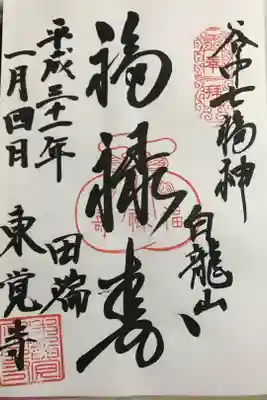 谷中七福神
奉拝
白龍山
福禄寿
田端
東覚寺
平成三十一年
一月四日